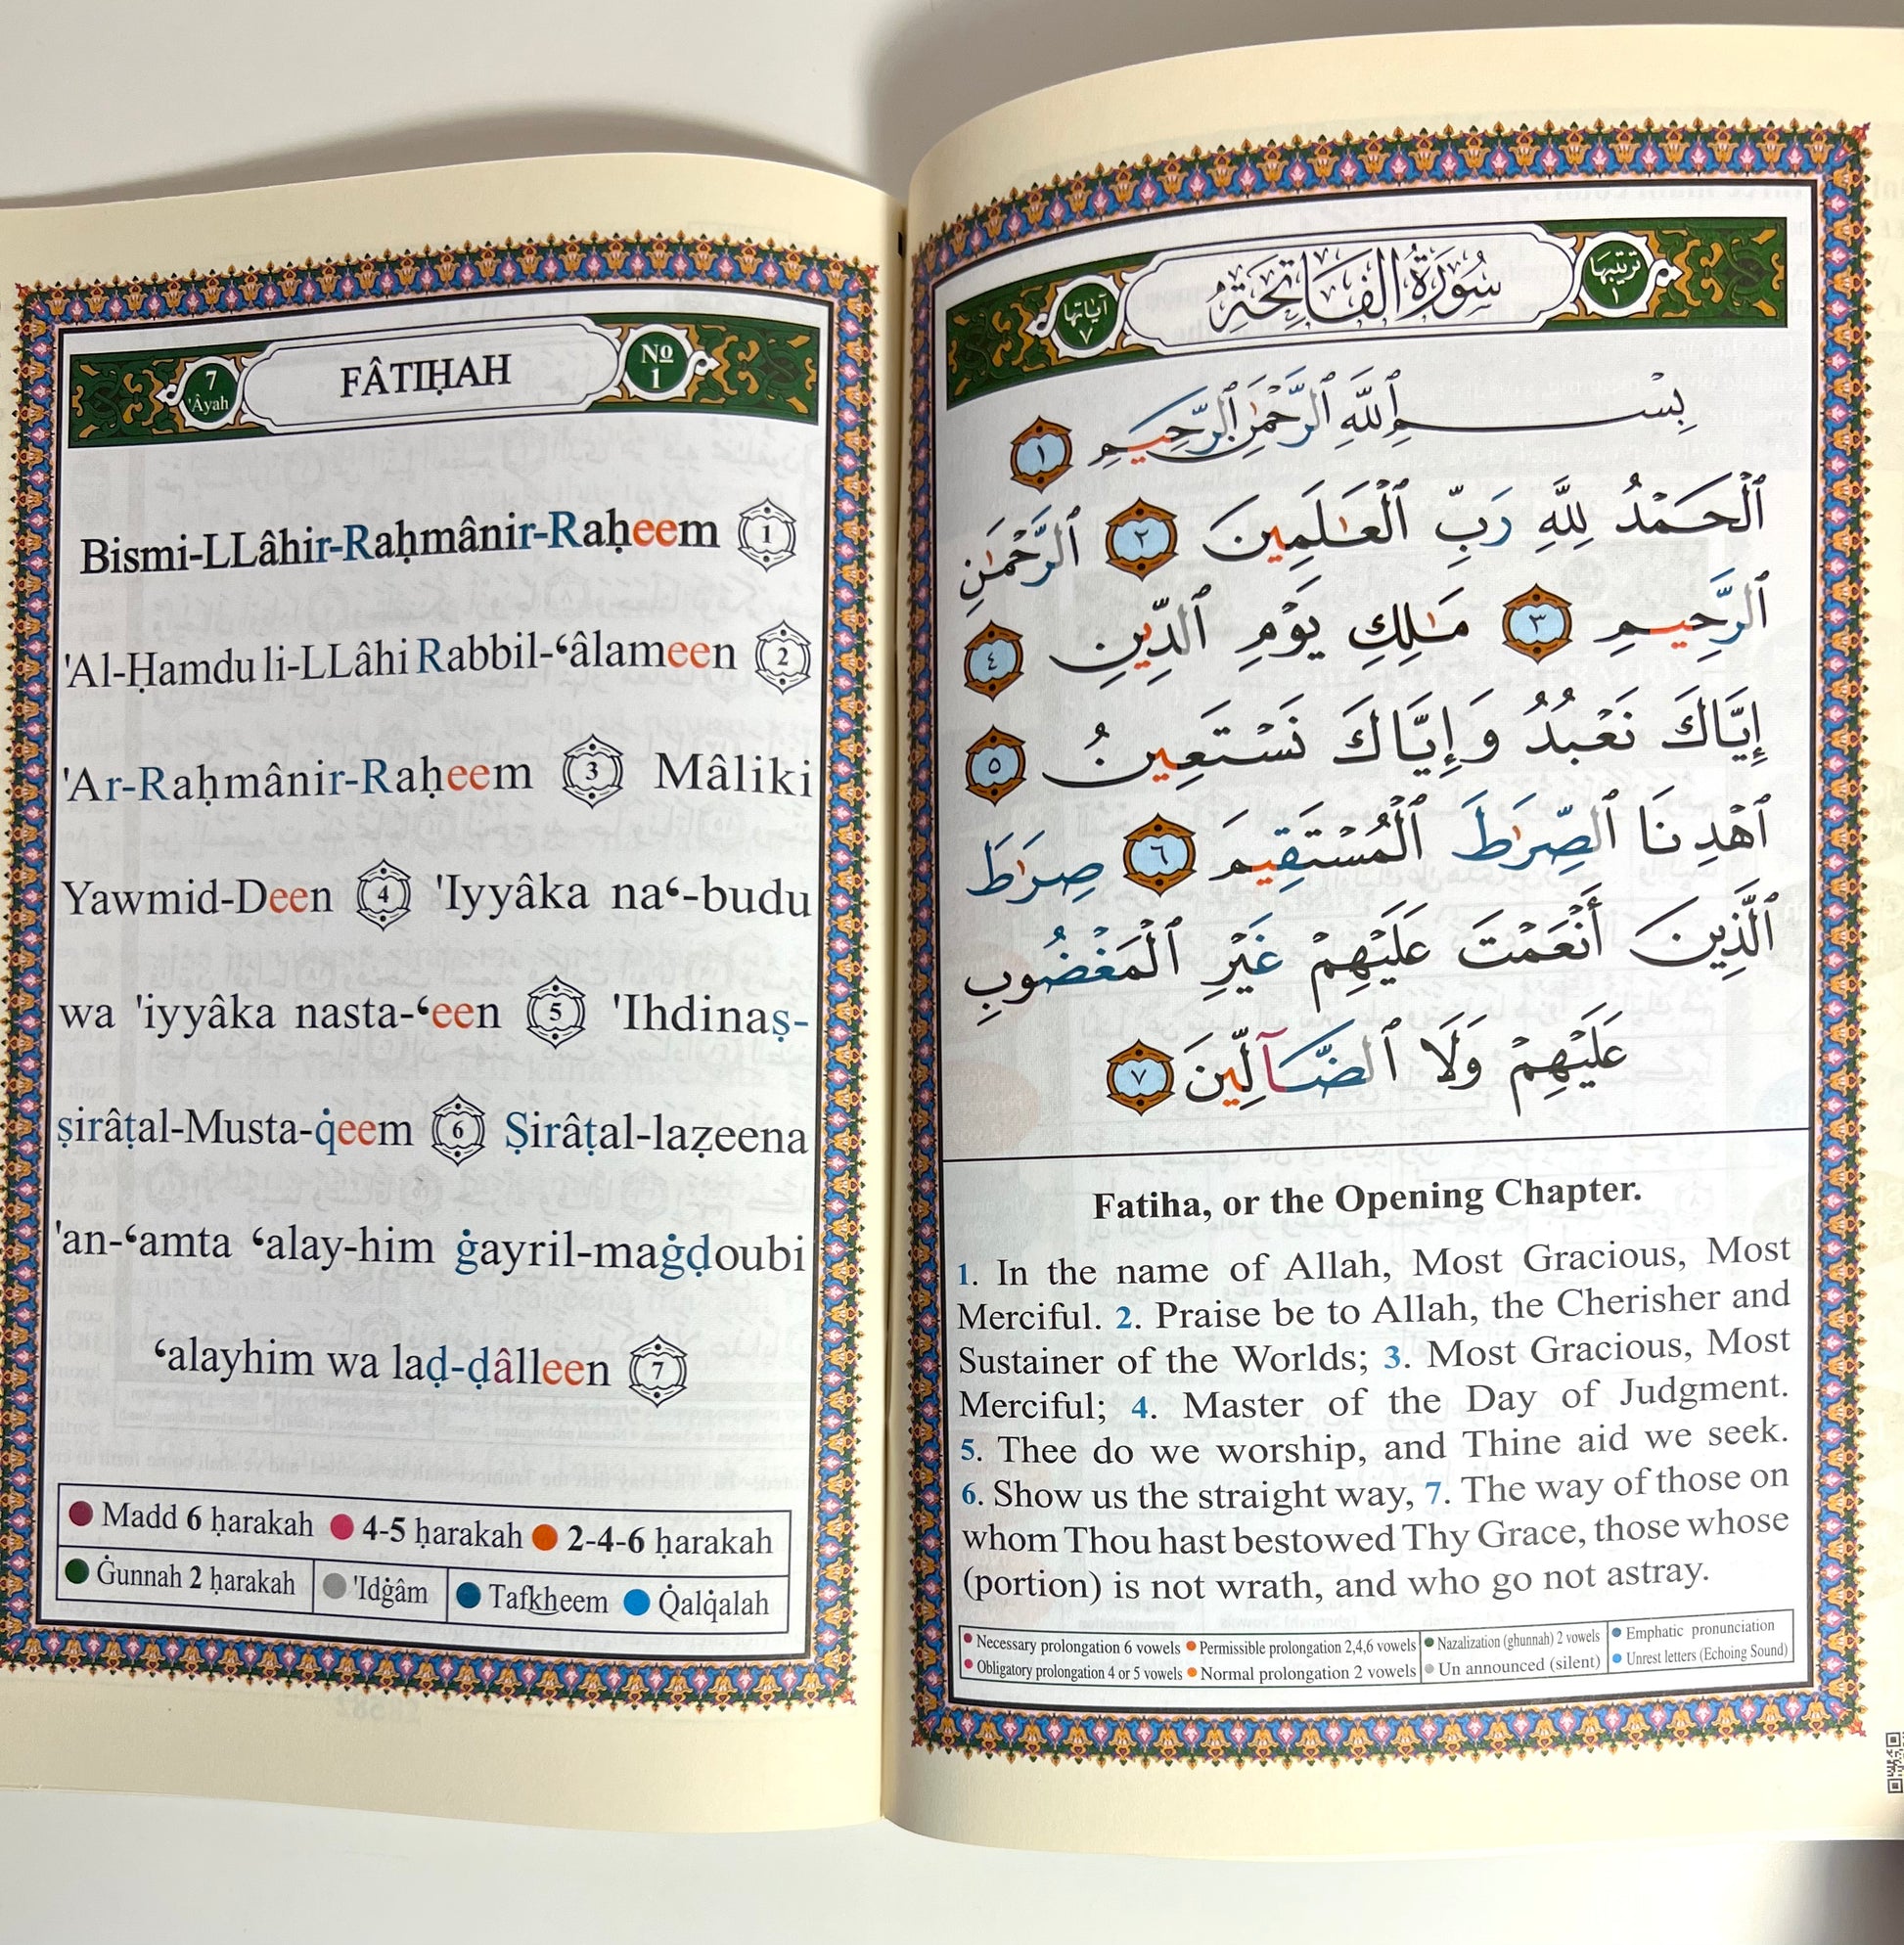 7
'Âyah
FÂTIḤAH
№
1
Bismi-LLâhir-Raḥmânir-Raḥeem 1
'Al-Ḥamdu li-LLâhi Rabbil-‘âlameen 2
'Ar-Raḥmânir-Raḥeem 3 Mâliki
Yawmid-Deen 4 'Iyyâka na‘-budu
wa 'iyyâka nasta-‘een 5 'Ihdinaṣ-
ṣirâṭal-Musta-q̇eem 6 Ṣirâṭal-laẓeena
'an-‘amta ‘alay-him ġayril-maġḍoubi
‘alayhim wa laḍ-ḍâlleen 7
Madd 6 ḥarakah 4-5 ḥarakah 2-4-6 ḥarakah
Ġunnah 2 ḥarakah 'Idġâm Tafkheem Q̇alq̇alah
ترتيبها
١
سُورَةُ الفَاتِحَةِ
آياتها
٧
بِسْمِ ٱللَّهِ ٱلرَّحْمَٰنِ ٱلرَّحِيمِ ١
ٱلْحَمْدُ لِلَّهِ رَبِّ ٱلْعَٰلَمِينَ ٢ ٱلرَّحْمَٰنِ
ٱلرَّحِيمِ ٣ مَٰلِكِ يَوْمِ ٱلدِّينِ ٤
إِيَّاكَ نَعْبُدُ وَإِيَّاكَ نَسْتَعِينُ ٥
ٱهْدِنَا ٱلصِّرَٰطَ ٱلْمُسْتَقِيمَ ٦ صِرَٰطَ
ٱلَّذِينَ أَنْعَمْتَ عَلَيْهِمْ غَيْرِ ٱلْمَغْضُوبِ
عَلَيْهِمْ وَلَا ٱلضَّآلِّينَ ٧
Fatiha, or the Opening Chapter.
1. In the name of Allah, Most Gracious, Most
Merciful. 2. Praise be to Allah, the Cherisher and
Sustainer of the Worlds; 3. Most Gracious, Most
Merciful; 4. Master of the Day of Judgment.
5. Thee do we worship, and Thine aid we seek.
6. Show us the straight way, 7. The way of those on
whom Thou hast bestowed Thy Grace, those whose
(portion) is not wrath, and who go not astray.
Necessary prolongation 6 vowels Permissible prolongation 2,4,6 vowels Nazalization (ghunnah) 2 vowels Emphatic pronunciation
Obligatory prolongation 4 or 5 vowels Normal prolongation 2 vowels Un announced (silent) Unrest letters (Echoing Sound)